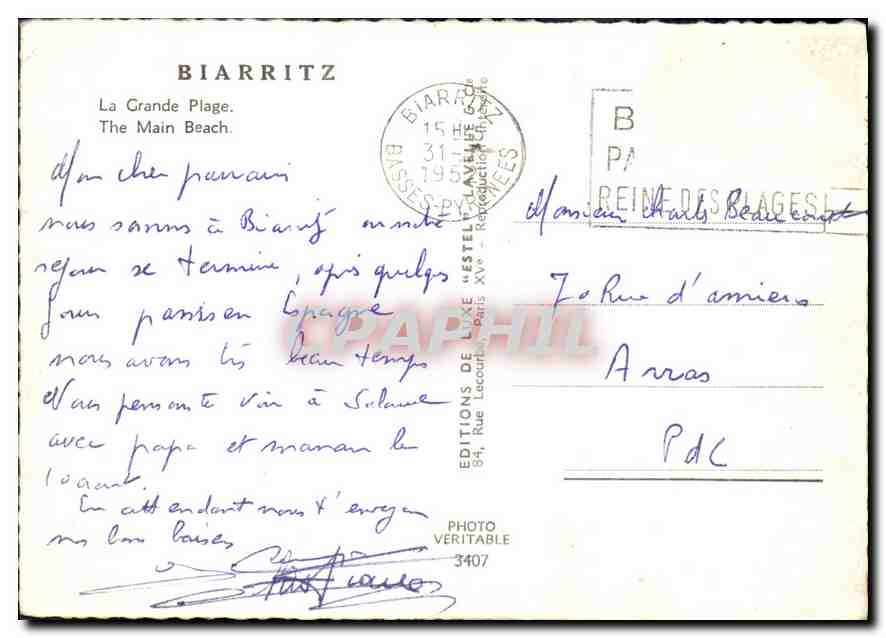 BIARRITZ
La Grande Plage.
The Main Beach.
BIARRITZ
15 H
31
195
BASSES-PYRENEES
B
PA
REINE DES PLAGES
Mon cher parrain
nous sommes à Biarritz où notre
séjour se termine, après quelques
jours passés en Espagne
nous avons très beau temps
Nous pensons te voir à
avec papa et maman le
10 août.
En attendant nous t'envoyons
nos bons baisers
Monsieur Charles
70 Rue d'amiens
Arras
PdC
EDITIONS DE LUXE "ESTEL" LAVELLE & Cie
84, Rue Lecourbe, Paris XVe - Reproduction Interdite
PHOTO
VERITABLE
3407
CPAPHIL